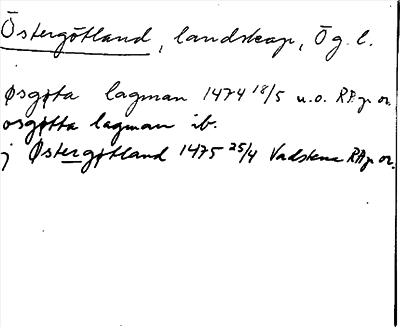 Östergötland, landskap, Ög. l.
øsgøta lagman 1474 18/5 u.o. RAp or.
osgøtta lagman ib.
j Østergøtland 1475 25/4 Vadstena RAp or.